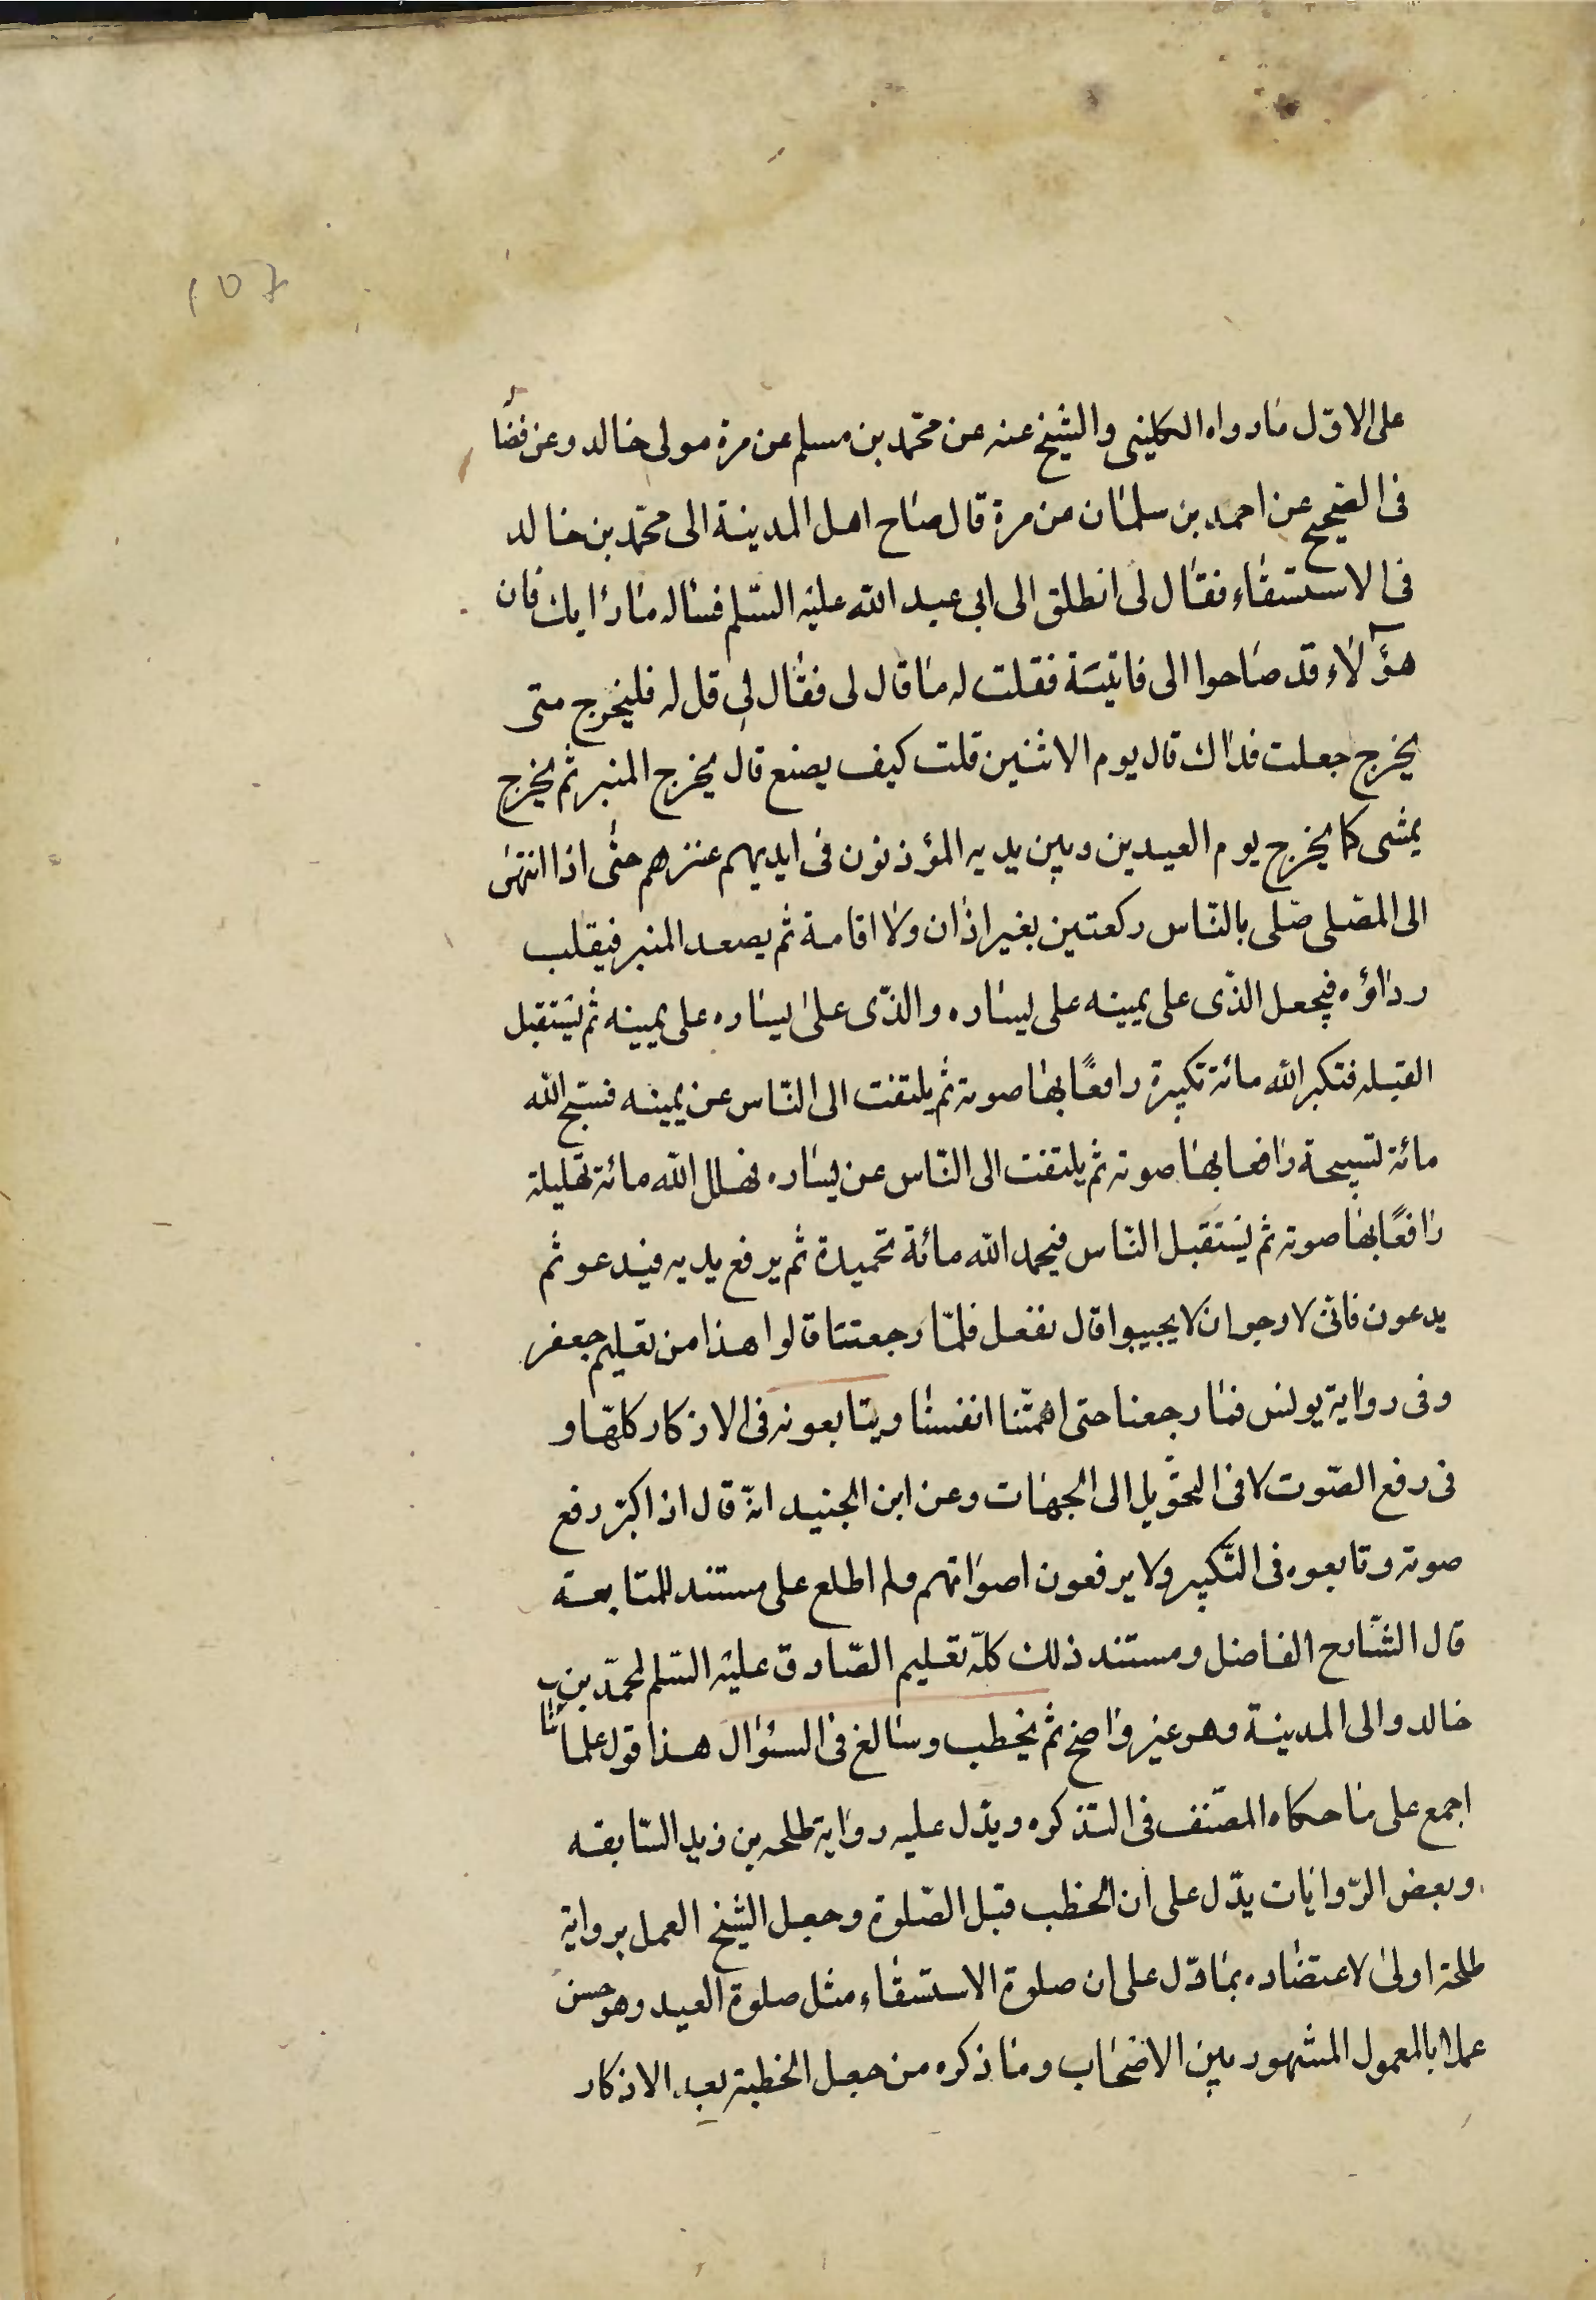 على الاوّل ما رواه الكليني والشيخ عنه عن محمّد بن مسلم عن مرة مولى خالد وعن فضا
فى الصّحيح عن احمد بن سلمان من مرة قال صاح اهل المدينة الى محمّد بن خالد
فى الاستسقاء فقال لى انطلق الى ابى عبد الله عليه السّلم فساله ما رايك فان
هؤلاء قد صاحوا الى فاتيته فقلت له ما قال لى فقال لى قل له فليخرج متى
يخرج جعلت فداك قال يوم الاثنين قلت كيف يصنع قال يخرج المنبر ثم يخرج
يمشى كما يخرج يوم العيدين وبين يديه المؤذنون فى ايديهم عنزهم حتى اذا انتهى
الى المصّلى صّلى بالنّاس ركعتين بغير اذان ولا اقامة ثم يصعد المنبر فيقلب
رداؤه فيجعل الذّى على يمينه على يساره والذّى على يساره على يمينه ثم يستقبل
القبله فتكبر الله مائة تكبيرة رافعًا بها صوته ثم يلتفت الى النّاس عن يمينه فسّبح الله
مائة تسبيحة رافعا بها صوته ثم يلتفت الى النّاس عن يساره فهلل الله مائة تهليلة
رافعًا بها صوته ثم يستقبل النّاس فيحمد الله مائة تحميدة ثم يرفع يديه فيدعو ثم
يدعون فانى لارجو ان لا يجيبوا قال نفعل فلمّا رجعتنا قالوا هذا من تعليم جعفر
وفى رواية يونس فما رجعنا حتى اهمّتنا انفسنا ويتابعونه فى الاذكار كلهّا و
فى رفع الصّوت لا فى التحّويل الى الجهات وعن ابن الجنيد انّه قال اذا كبّر رفع
صوته وتابعوه فى التّكبير ولا يرفعون اصواتهم ولم اطلع على مستند للمتابعة
قال الشّارح الفاضل ومستند ذلك كلّه تعليم الصّادق عليه السّلم لمحمّد بن
خالد والى المدينة وهو غير واضح ثم يخطب وسالغ فى السئوال هذا قول علمائنا
اجمع على ما حكاه المصّنف فى التذكره ويدّل عليه رواية طلحه بن زيد السّابقه
وبعض الرّوايات يدّل على ان الخطب قبل الصّلوة وجعل الشيخ العمل برواية
طلحة اولى لاعتضاده بما دّل على ان صلوة الاستسقاء مثل صلوة العيد وهو حسن
عملا بالمعمول المشهور بين الاضحاب وما ذكره من جعل الخطبة بعد الاذكار